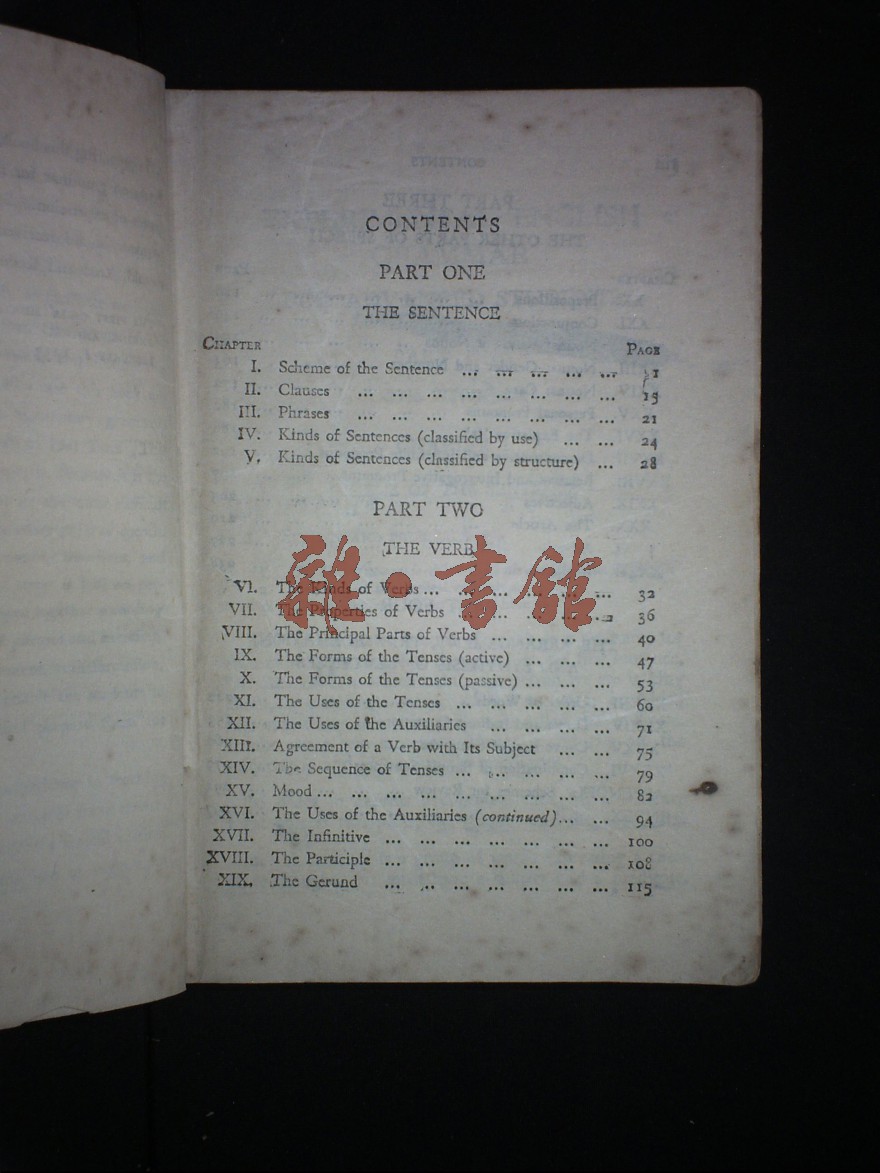 CONTENTS
PART ONE
THE SENTENCE
CHAPTER PAGE
I. Scheme of the Sentence ... ... ... ... ...
II. Clauses ... ... ... ... ... ... ... ... 15
III. Phrases ... ... ... ... ... ... ... ... 21
IV. Kinds of Sentences (classified by use) ... ... 24
V. Kinds of Sentences (classified by structure) ... 28
PART TWO
THE VERB
雜·書舘
VI. The Kinds of Verbs ... ... ... ... ... ... 32
VII. The Properties of Verbs ... ... ... ... ... 36
VIII. The Principal Parts of Verbs ... ... ... ... 40
IX. The Forms of the Tenses (active) ... ... ... 47
X. The Forms of the Tenses (passive) ... ... ... 53
XI. The Uses of the Tenses ... ... ... ... ... 60
XII. The Uses of the Auxiliaries ... ... ... ... 71
XIII. Agreement of a Verb with Its Subject ... ... 75
XIV. The Sequence of Tenses ... ... ... ... ... 79
XV. Mood ... ... ... ... ... ... ... ... ... 82
XVI. The Uses of the Auxiliaries (continued) ... ... 94
XVII. The Infinitive ... ... ... ... ... ... ... 100
XVIII. The Participle ... ... ... ... ... ... ... 108
XIX. The Gerund ... ... ... ... ... ... ... 115